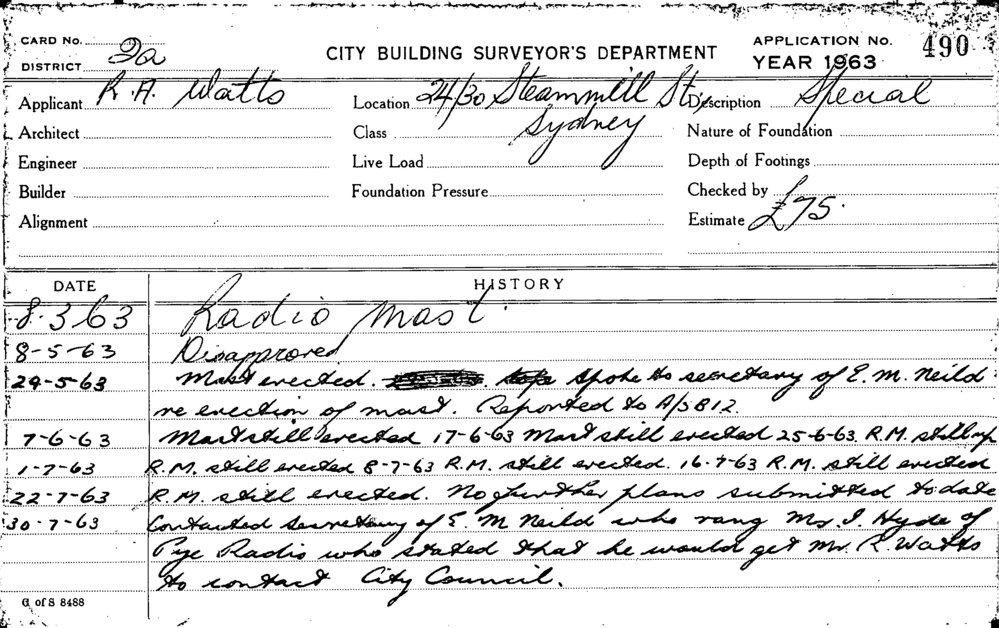 CARD No.
DISTRICT 2a
CITY BUILDING SURVEYOR'S DEPARTMENT
APPLICATION No. 490
YEAR 1963
Applicant R. A. Watts
Location 24/30 Steammill St,
Sydney
Description Special
Architect
Class
Nature of Foundation
Engineer
Live Load
Depth of Footings
Builder
Foundation Pressure
Checked by
Alignment
Estimate £75.
DATE HISTORY
8.3.63 Radio Mast.
8-5-63 Disapproved
29-5-63 Mast erected. Spoke to secretary of E. M. Neild
re erection of mast. Reported to A/SB12.
7-6-63 Mast still erected 17-6-63 Mast still erected 25-6-63. R.M. still up
1-7-63 R.M. still erected 8-7-63 R.M. still erected. 16-7-63 R.M. still erected
22-7-63 R.M. still erected. No further plans submitted to date
30-7-63 Contacted secretary of E. M Neild who rang Mr. I. Hyde of
Pye Radio who stated that he would get Mr. R. Watts
to contact City Council.
G of S 8488